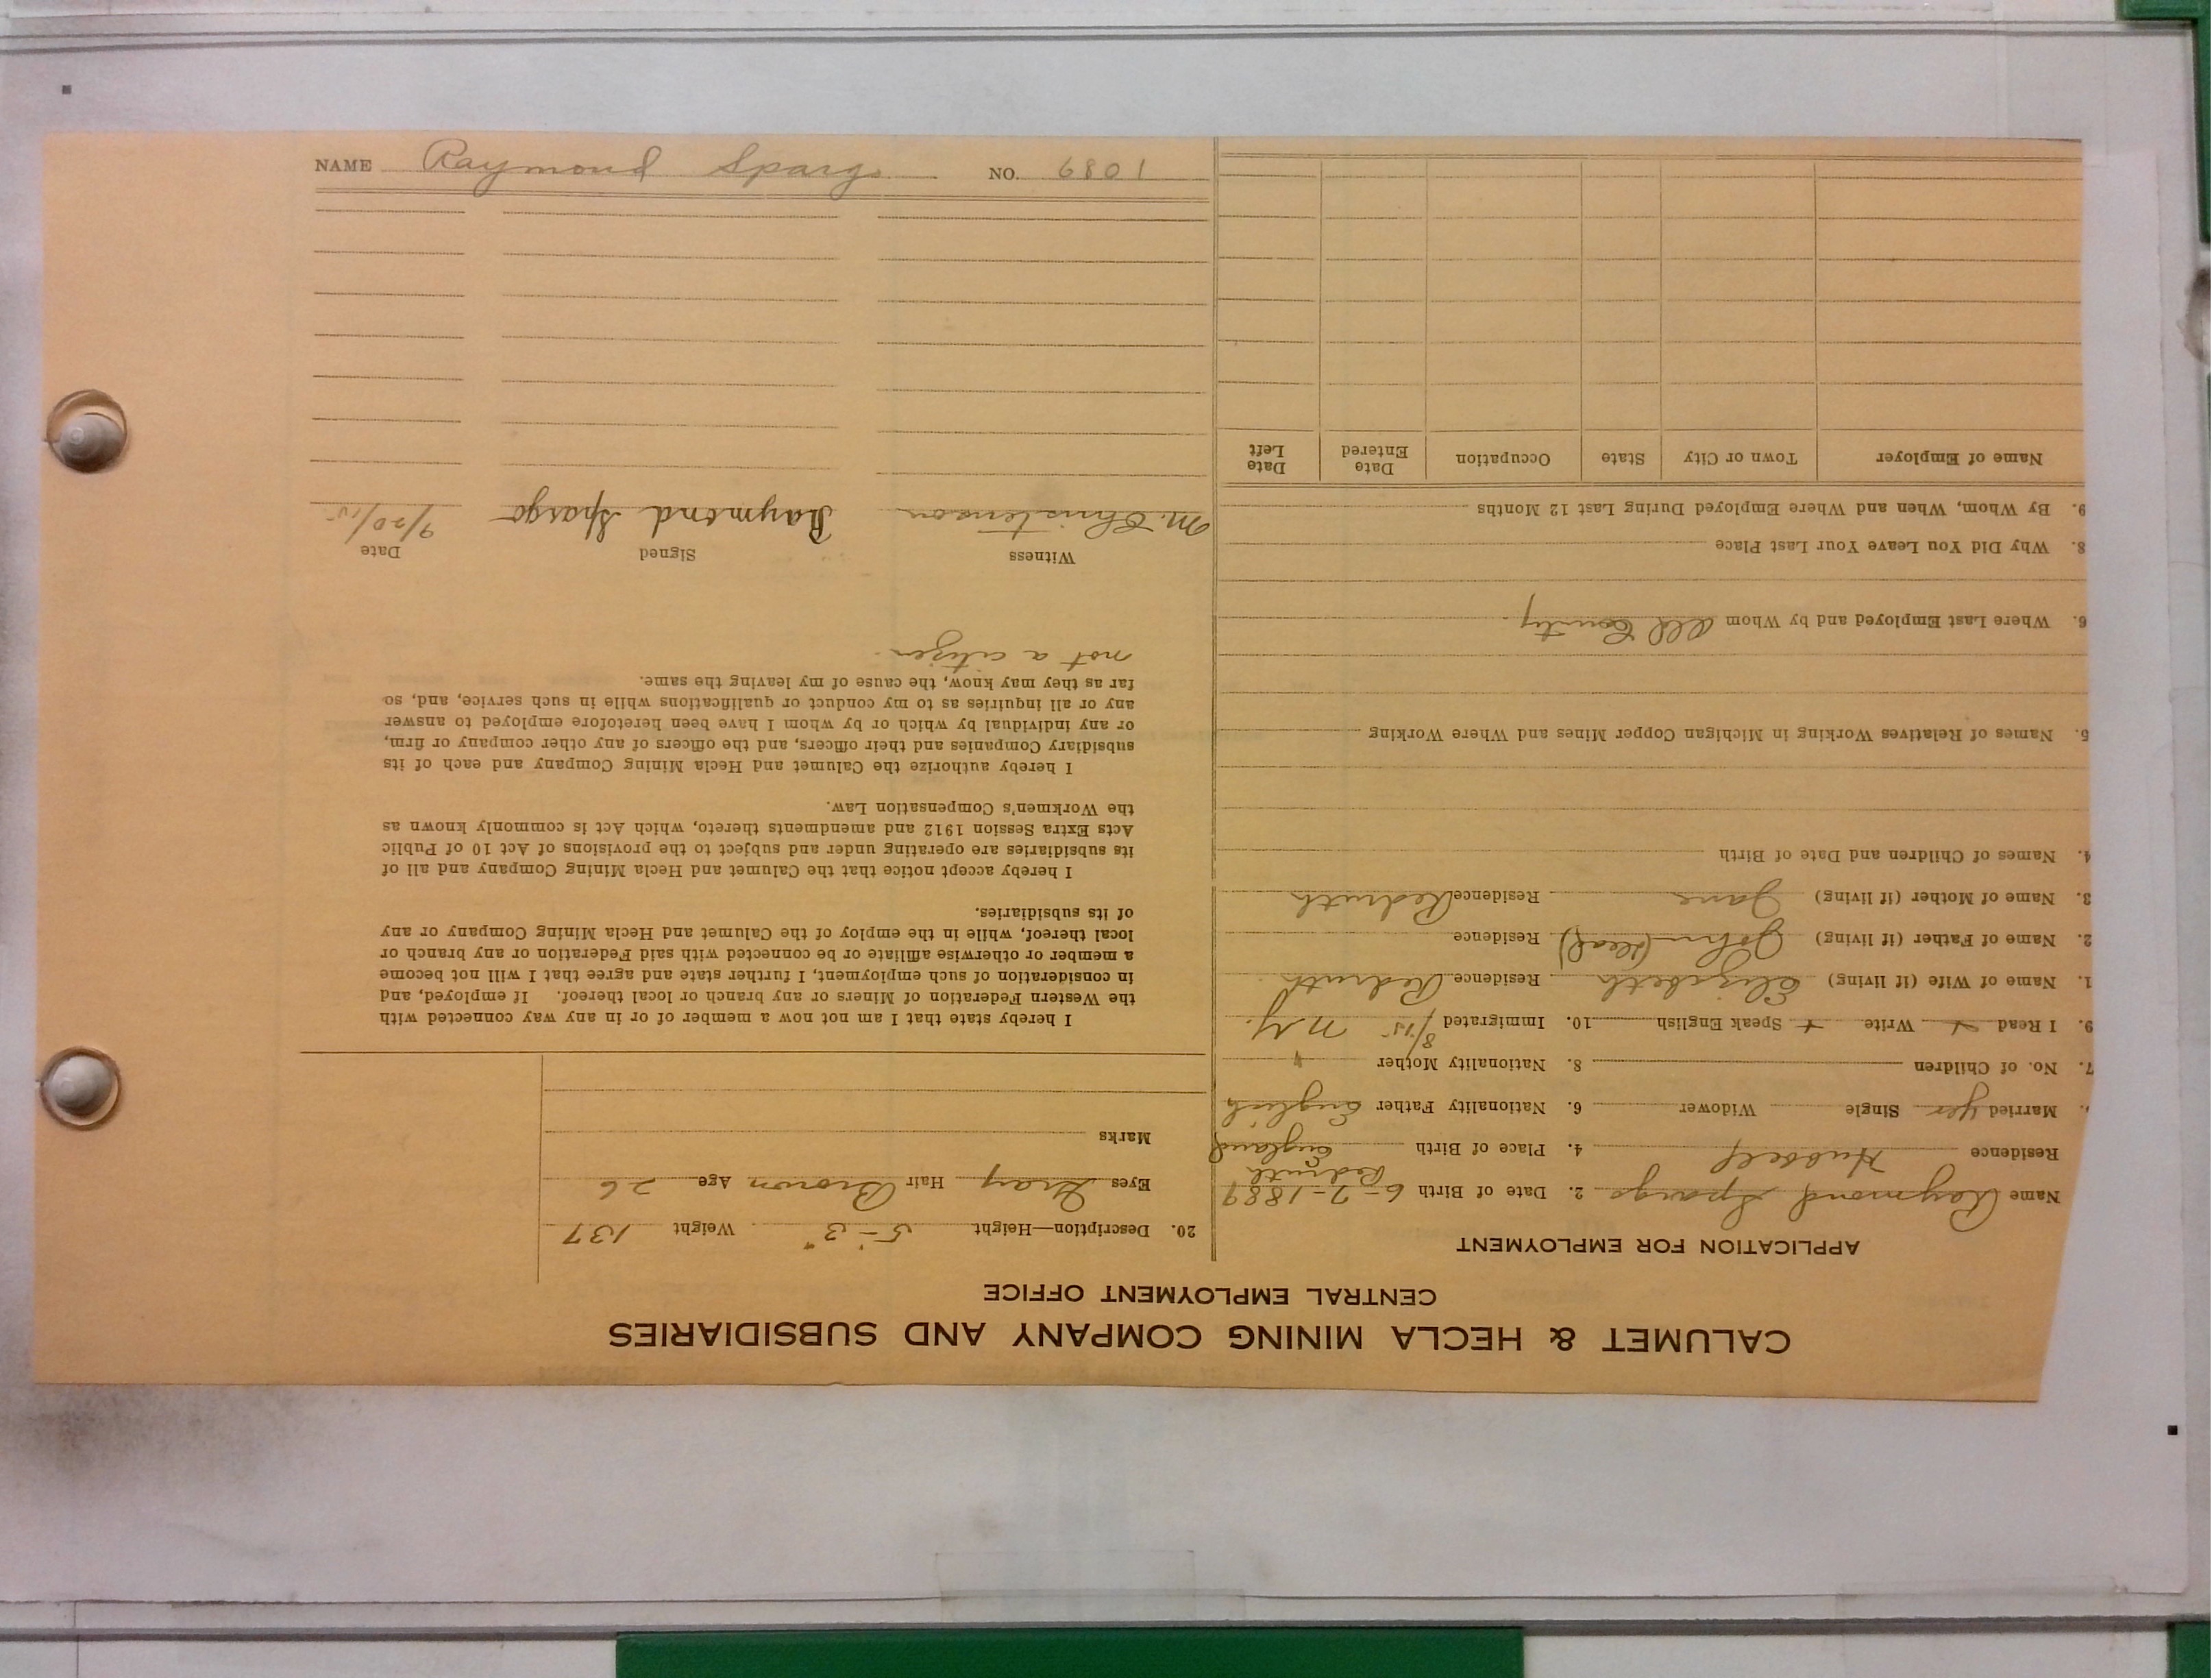 CALUMET & HECLA MINING COMPANY AND SUBSIDIARIES
CENTRAL EMPLOYMENT OFFICE
APPLICATION FOR EMPLOYMENT
Name Raymond Spargo 2. Date of Birth 6-7-1889
Redruth
Residence Hubbell 4. Place of Birth England
Married yes Single Widower 6. Nationality Father English
7. No. of Children 8. Nationality Mother "
9. I Read + Write + Speak English 10. Immigrated 8/15 N.Y.
1. Name of Wife (if living) Elizabeth Residence Redruth
2. Name of Father (if living) John (dead) Residence
3. Name of Mother (if living) Jane Residence Redruth
4. Names of Children and Date of Birth
5. Names of Relatives Working in Michigan Copper Mines and Where Working
6. Where Last Employed and by Whom Old County
8. Why Did You Leave Your Last Place
9. By Whom, When and Where Employed During Last 12 Months
Name of Employer Town or City State Occupation Date Entered Date Left
20. Description—Height 5'-3" Weight 137
Eyes Gray Hair Brown Age 26
Marks
I hereby state that I am not now a member of or in any way connected with
the Western Federation of Miners or any branch or local thereof. If employed, and
in consideration of such employment, I further state and agree that I will not become
a member or otherwise affiliate or be connected with said Federation or any branch or
local thereof, while in the employ of the Calumet and Hecla Mining Company or any
of its subsidiaries.
I hereby accept notice that the Calumet and Hecla Mining Company and all of
its subsidiaries are operating under and subject to the provisions of Act 10 of Public
Acts Extra Session 1912 and amendments thereto, which Act is commonly known as
the Workmen's Compensation Law.
I hereby authorize the Calumet and Hecla Mining Company and each of its
subsidiary Companies and their officers, and the officers of any other company or firm,
or any individual by which or by whom I have been heretofore employed to answer
any or all inquiries as to my conduct or qualifications while in such service, and, so
far as they may know, the cause of my leaving the same.
not a citizen
Witness Signed Date
M. Christenson Raymond Spargo 9/20/15
NAME Raymond Spargo NO. 6801